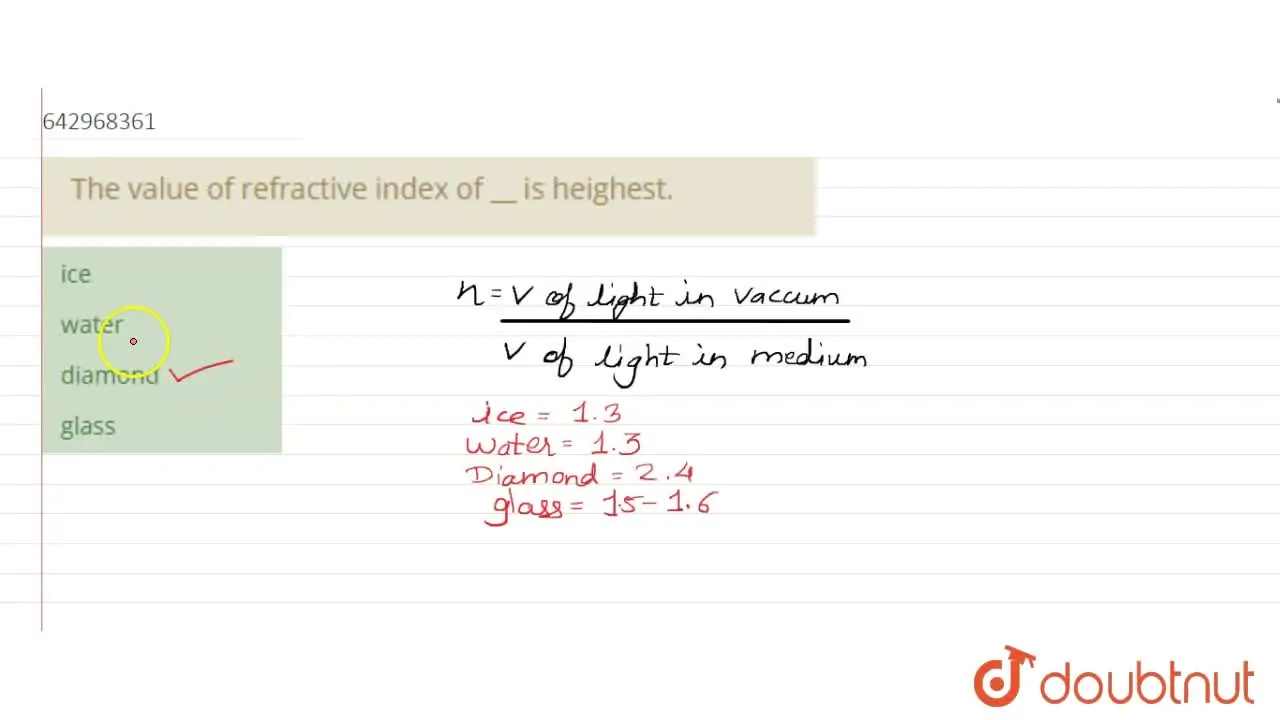 642968361
The value of refractive index of __ is heighest.
ice
water
diamond
glass
n = v of light in vaccum
v of light in medium
ice = 1.3
water = 1.3
Diamond = 2.4
glass = 1.5 - 1.6
doubtnut